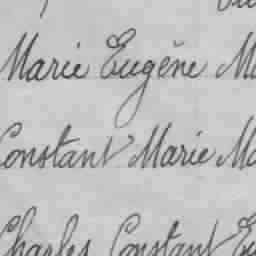 Marie Eugène M
Constant Marie Ma
Charles Constant Eu